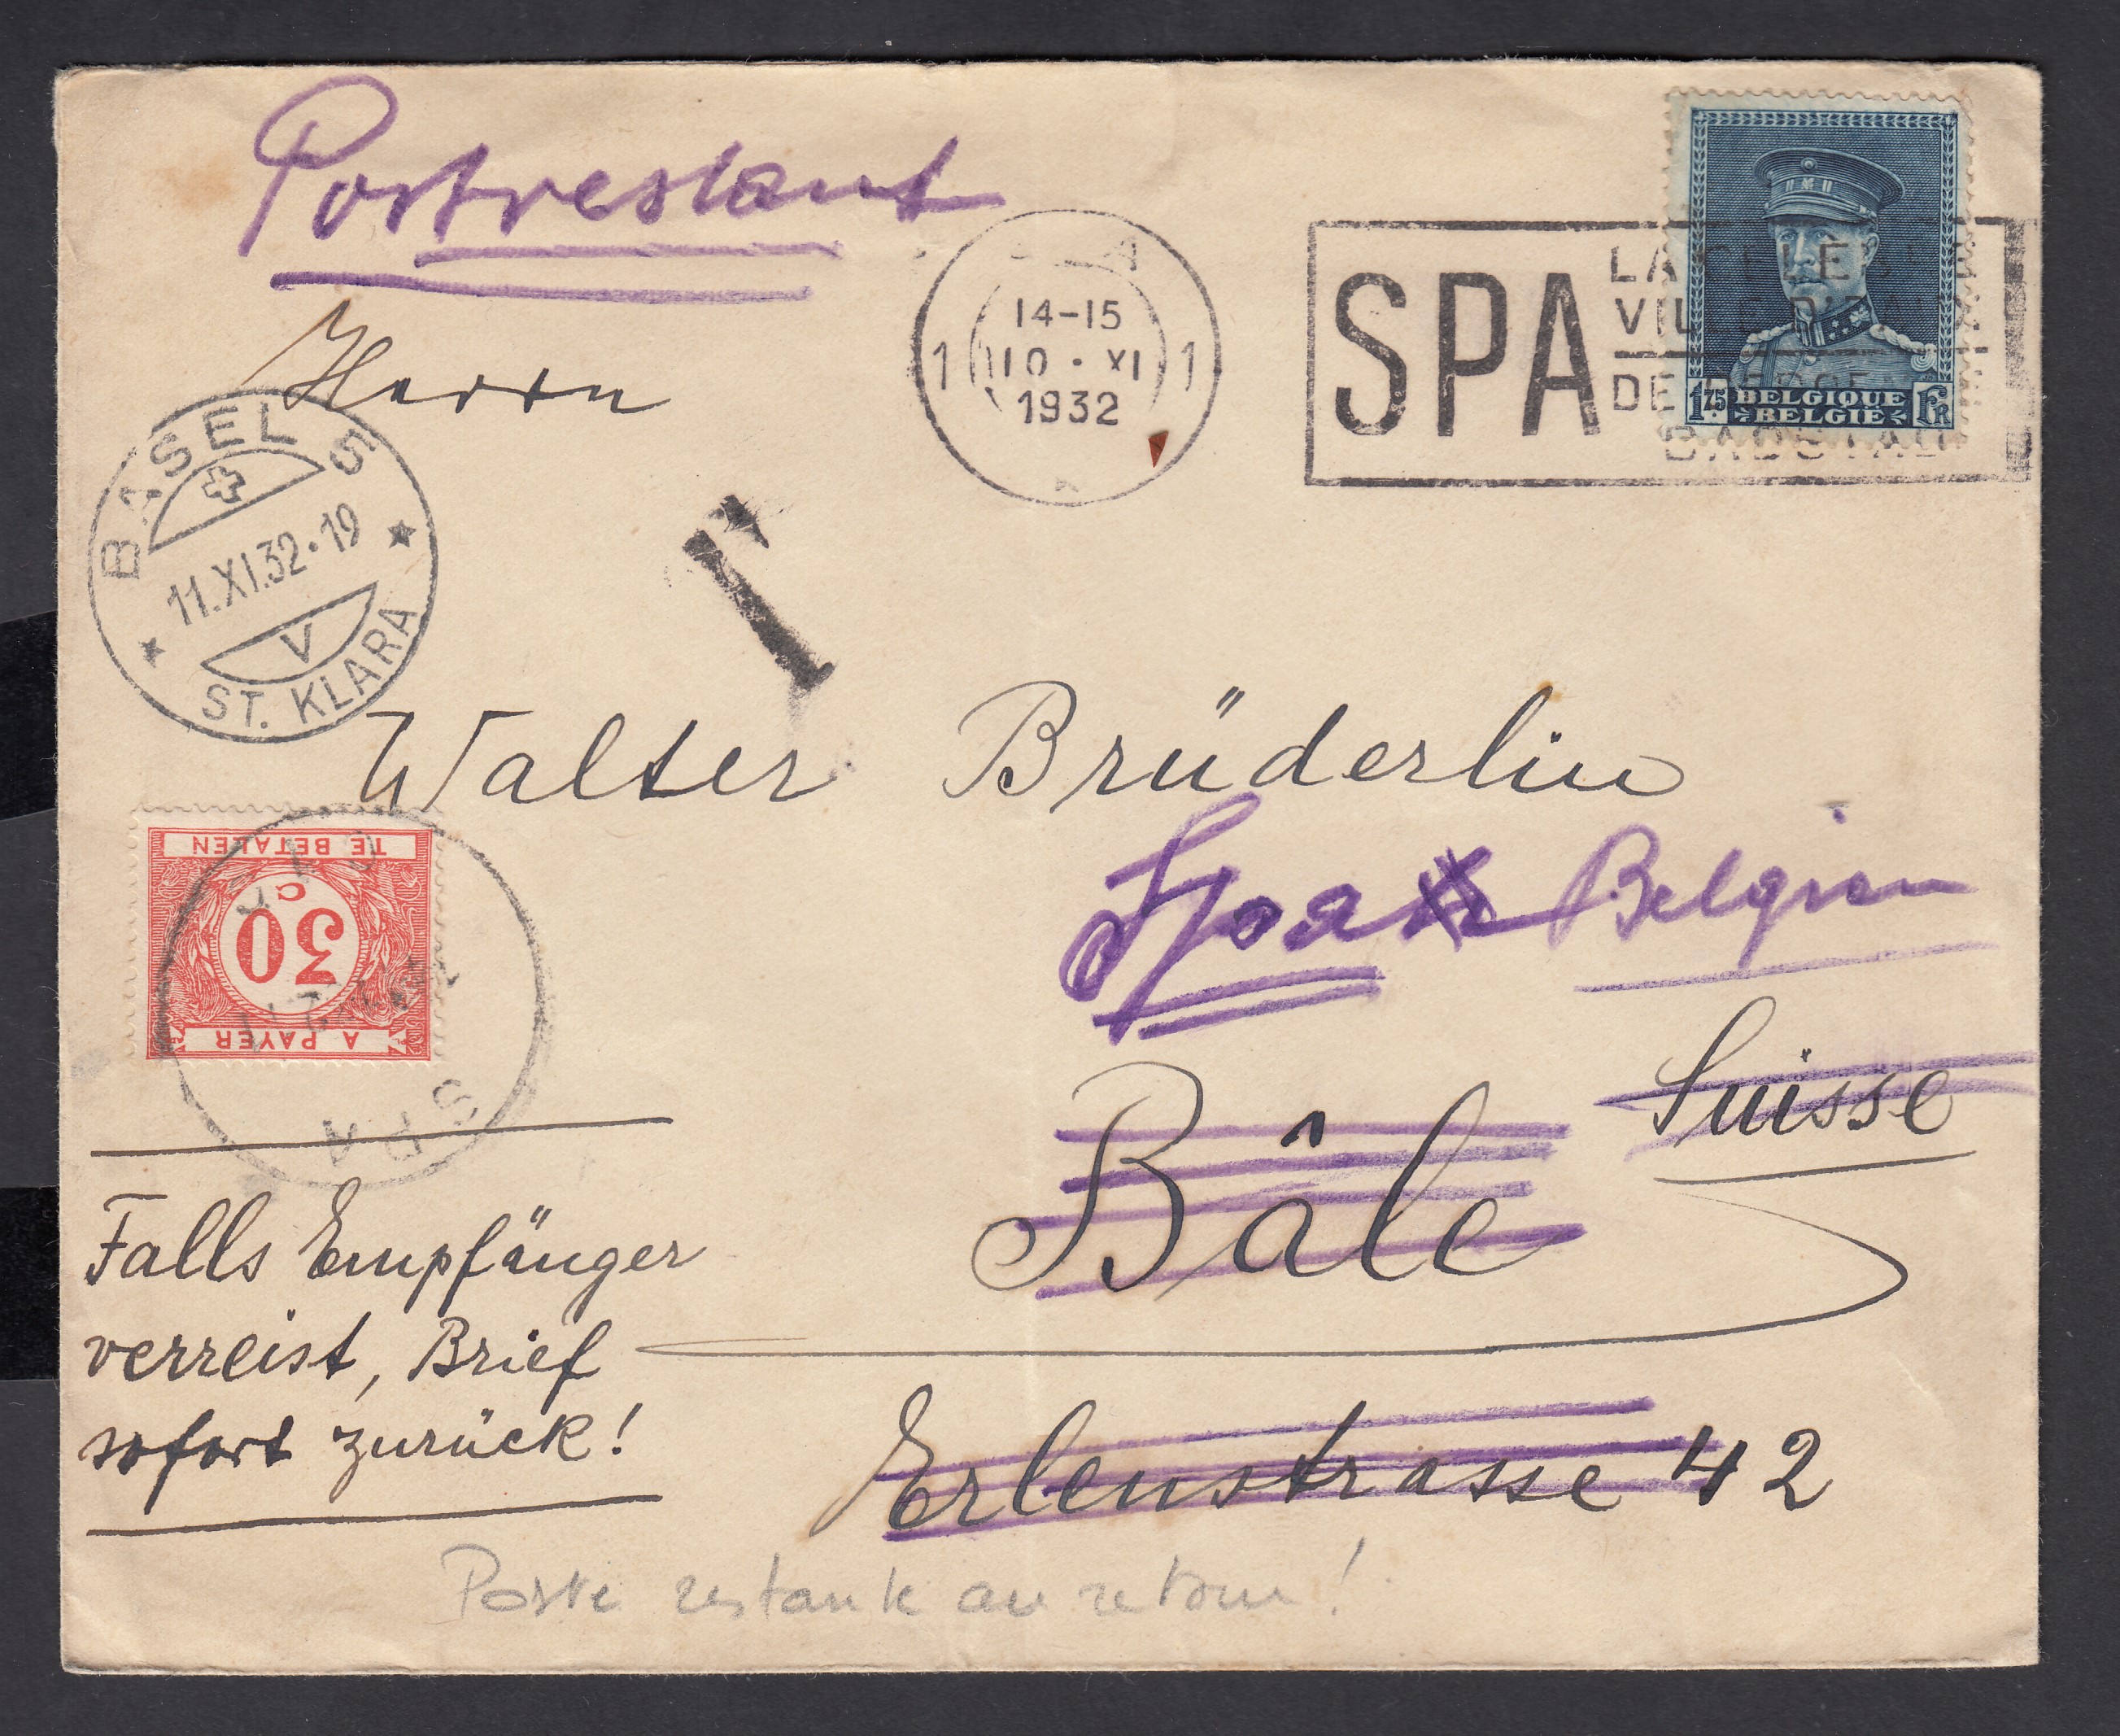 Postrestant
Herrn
1 14-15 1
10 · XI
1932
SPA
LA CELEBRE
VILLE D'EAUX
DE
BADSTAD
1.75 BELGIQUE FR
BELGIË
BASEL 5
11.XI.32·19
V
ST. KLARA
T
Walter Brüderlin
Spa Belgien
TE BETALEN
30
C
A PAYER
SPA
Suisse
Bâle
Falls Empfänger
verreist, Brief
sofort zurück!
Erlenstrasse 42
Poste restante au retour!